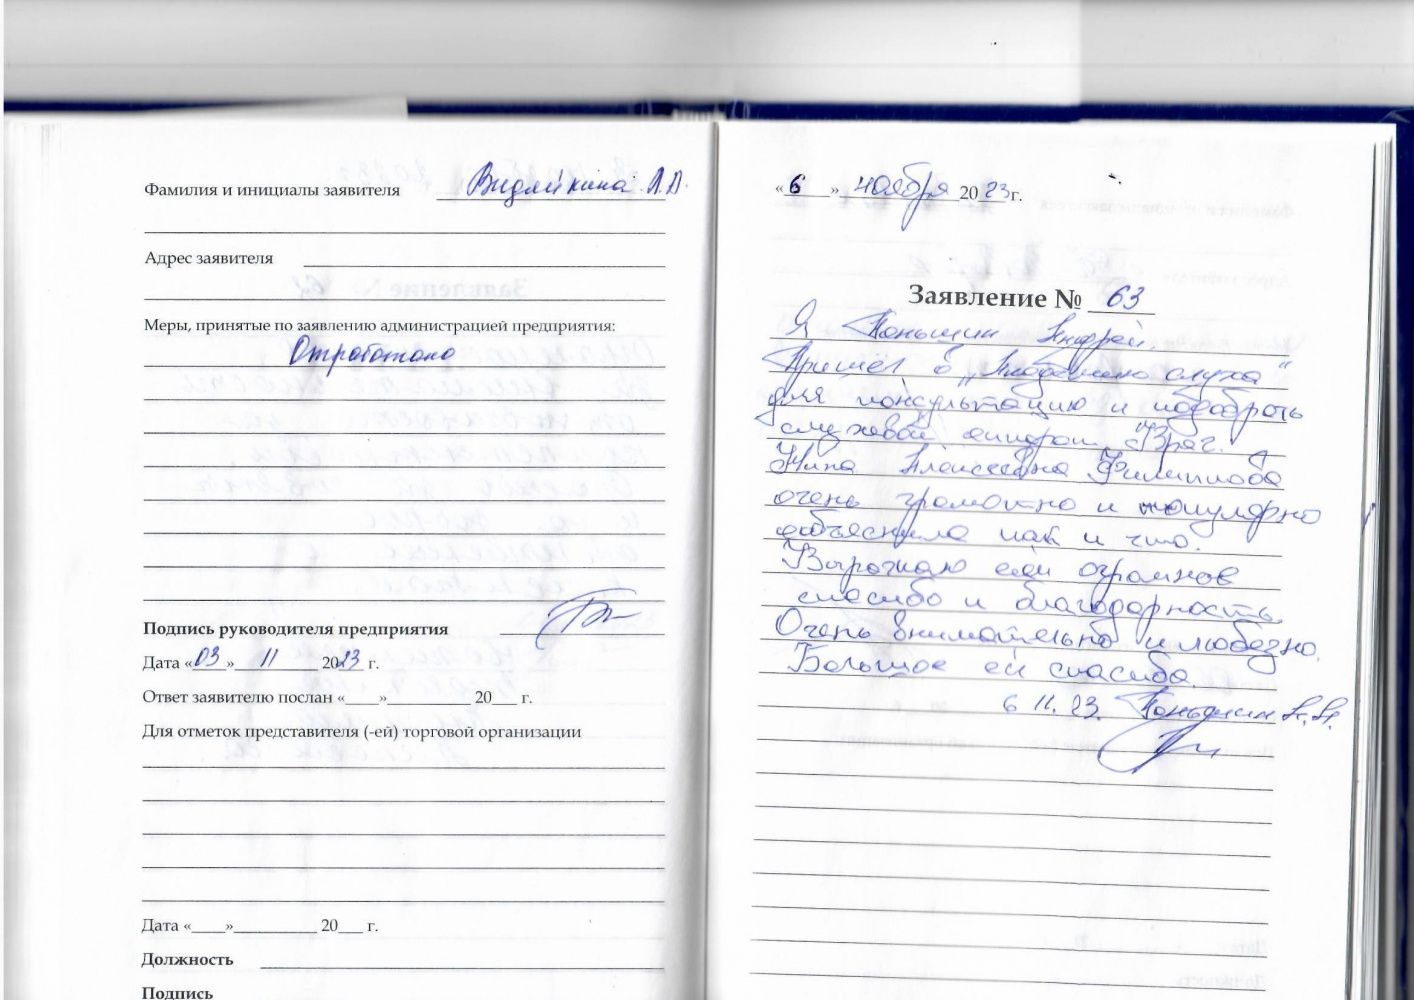 Фамилия и инициалы заявителя Видяйкина Л.П.
Адрес заявителя
Меры, принятые по заявлению администрацией предприятия:
Отработано
Подпись руководителя предприятия
Дата «03» 11 2023 г.
Ответ заявителю послан «____»__________ 20___ г.
Для отметок представителя (-ей) торговой организации
Дата «____»__________ 20___ г.
Должность
Подпись
«6» ноября 2023г.
Заявление № 63
Я Коньшин Андрей.
Пришёл в „Академию слуха"
для консультацию и подобрать
слуховой аппарат. Врач.
Нина Алексеевна Филиппова
очень грамотно и популярно
объяснила как и что.
Выражаю ей огромное
спасибо и благодарность.
Очень внимательно и любезно.
Большое ей спасибо.
6 11. 23.